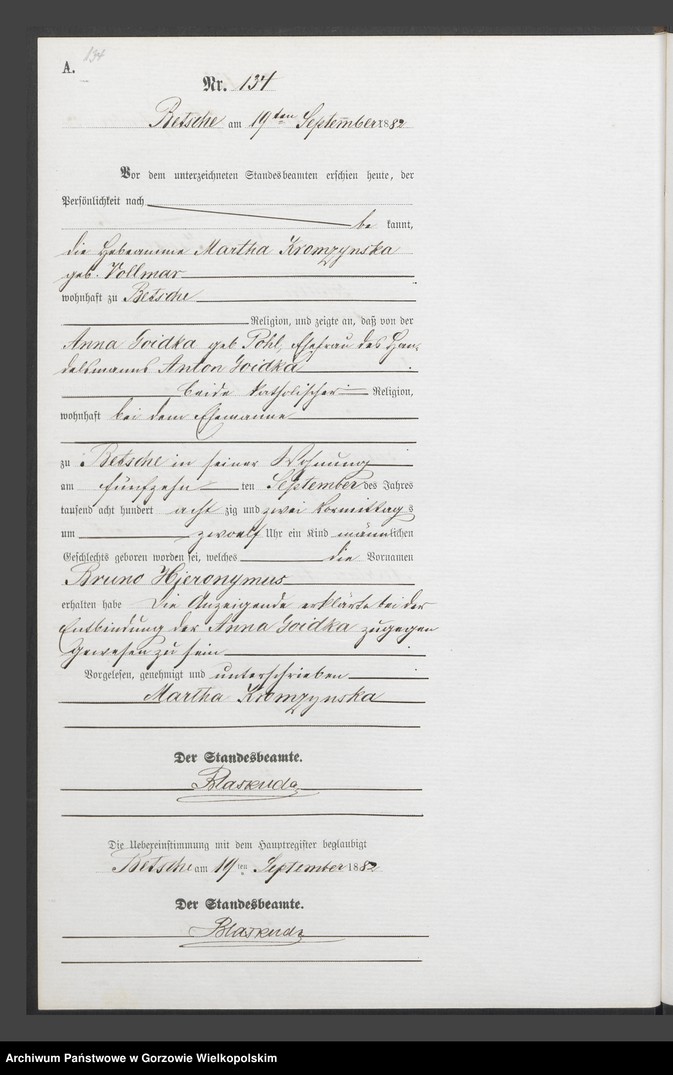 134
A.
Nr. 134
Betsche am 19ten September 1882
Vor dem unterzeichneten Standesbeamten erschien heute, der
Persönlichkeit nach
be kannt,
die Hebeamme Martha Kromzynska
geb. Vollmar
wohnhaft zu Betsche
Religion, und zeigte an, daß von der
Anna Goidka geb Pohl, Ehefrau des Han-
delsmanns Anton Goidka
beide katholischer Religion,
wohnhaft bei dem Ehemanne
zu Betsche in seiner Wohnung
am fünfzehn ten September des Jahres
tausend acht hundert acht zig und zwei Vormittags
um zwoelf Uhr ein Kind männlichen
Geschlechts geboren worden sei, welches die Vornamen
Bruno Hjeronymus
erhalten habe Die Anzeigende erklärte bei der
Entbindung der Anna Goidka zugegen
gewesen zu sein
Vorgelesen, genehmigt und unterschrieben
Martha Kromzynska
Der Standesbeamte.
Blaskuda
Die Uebereinstimmung mit dem Hauptregister beglaubigt
Betsche am 19ten September 1882
Der Standesbeamte.
Blaskuda
Archiwum Państwowe w Gorzowie Wielkopolskim